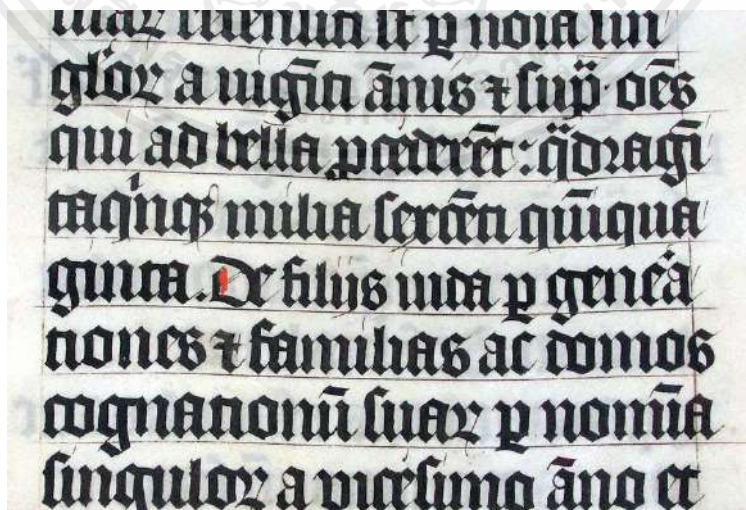 suaꝝ recensiti st̄ ꝑ noīa sīn
gl̄oꝝ a uigīti ānis ⁊ sup̄· oēs
qui ad bella ꝓcederēt: q̄dragī
taqͥnqꝫ milia sexcēti quīqua
ginta. De filijs iuda ꝑ geneᷓa
tiones ⁊ familias ac domos
cognationū suaꝝ ꝑ nomīa
singuloꝝ a vicesimo āno et